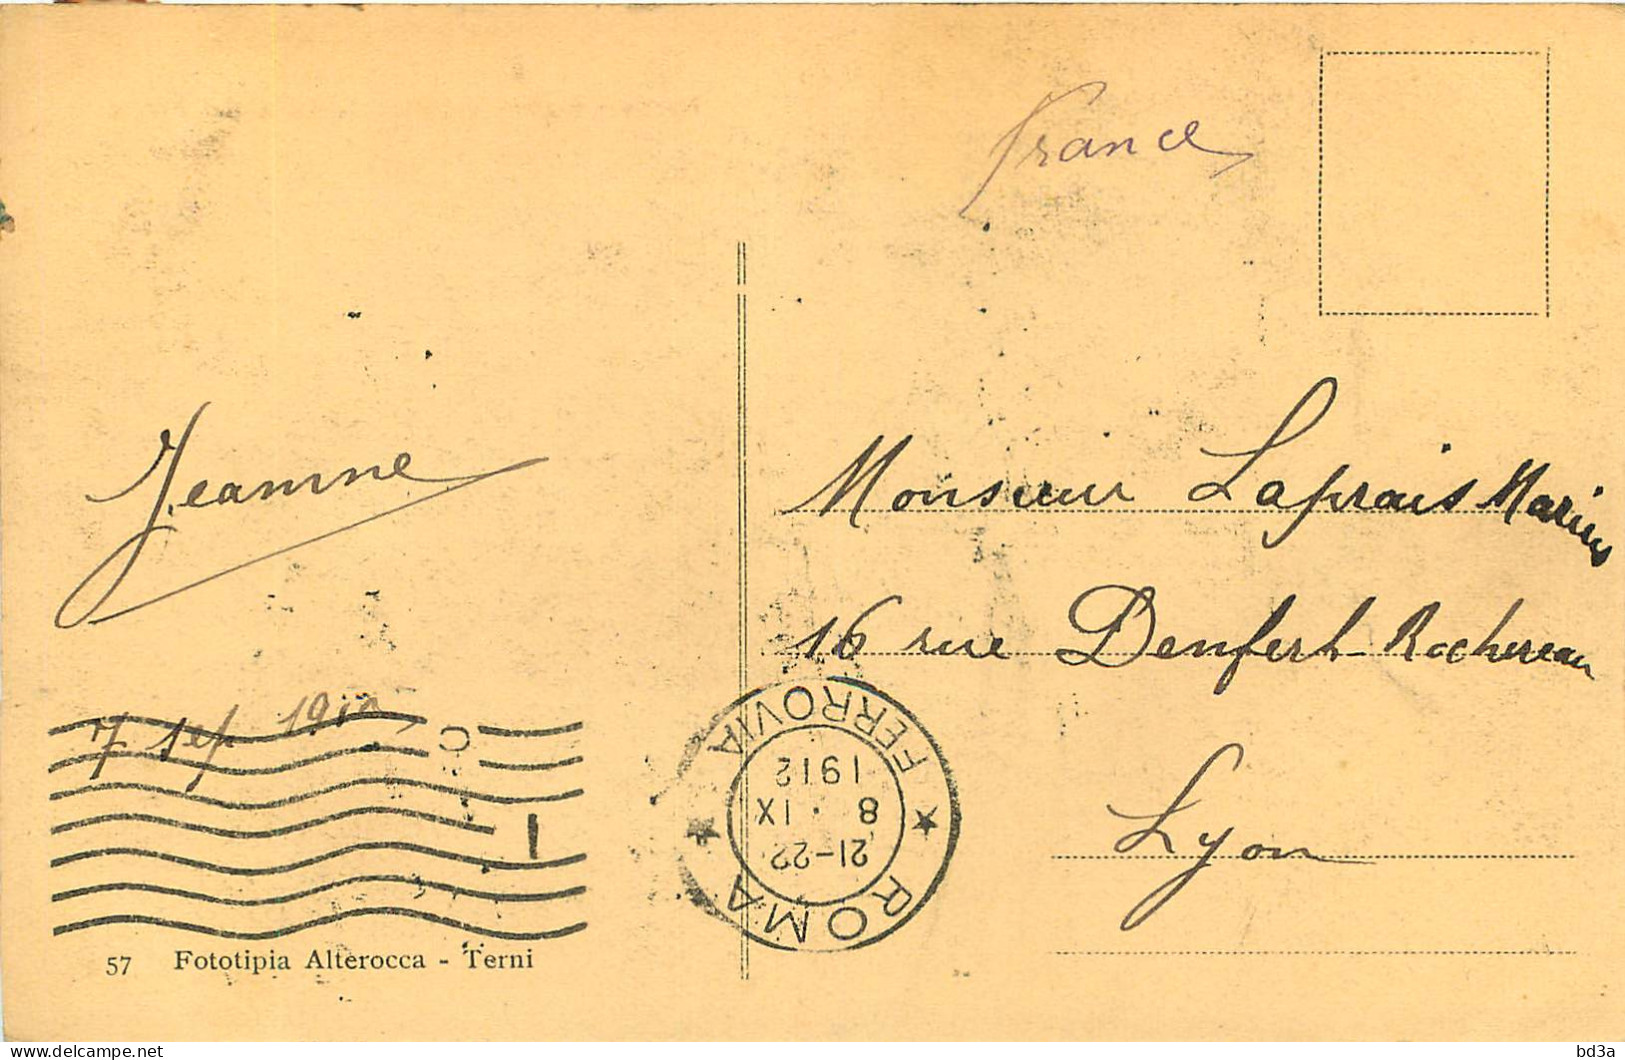 France
Jeanne
Monsieur Laprais Marius
16 rue Denfert-Rochereau
Lyon
7 sep 1912
ROMA
21-22
8 · IX
1912
FERROVIA
57 Fototipia Alterocca - Terni
delcampe.net
bd3a